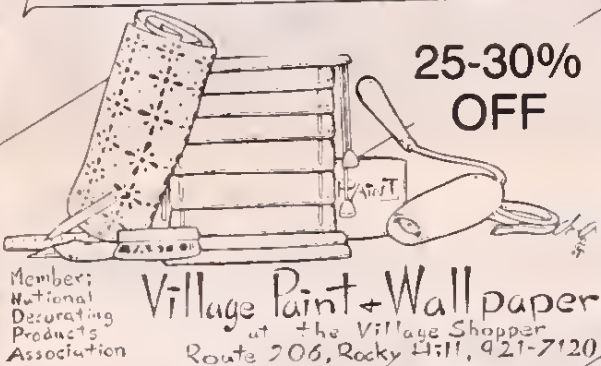 25-30%
OFF
PAINT
Member;
National
Decorating
Products
Association
Village Paint + Wallpaper
at the Village Shopper
Route 206, Rocky Hill, 921-7120